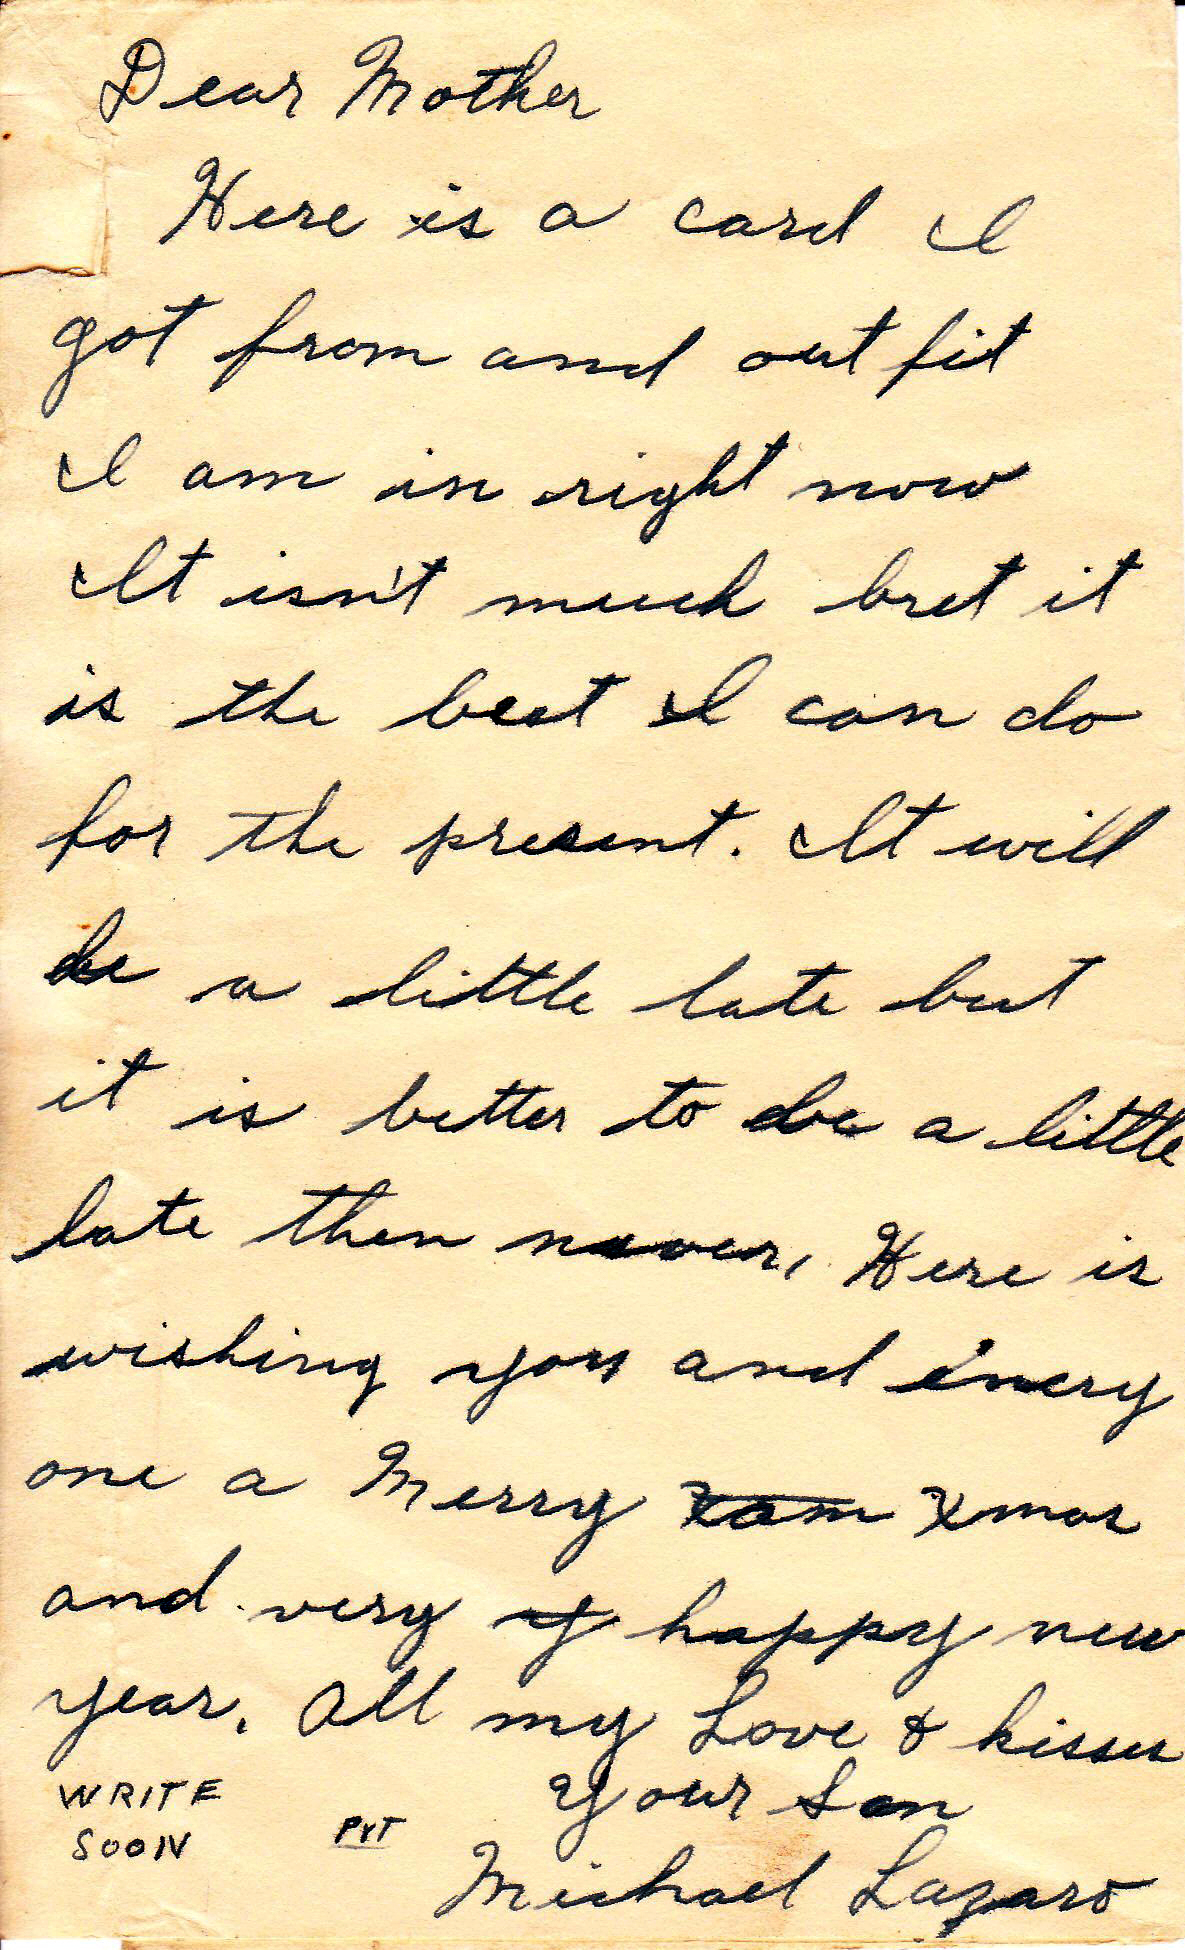 Dear Mother
Here is a card I
got from and out fit
I am in right now
It isn't much but it
is the best I can do
for the present. It will
be a little late but
it is better to be a little
late then never, Here is
wishing you and every
one a Merry Xmas
and very happy new
year. All my Love & kisses
WRITE SOON
Your Son
PVT
Michael Lazaro